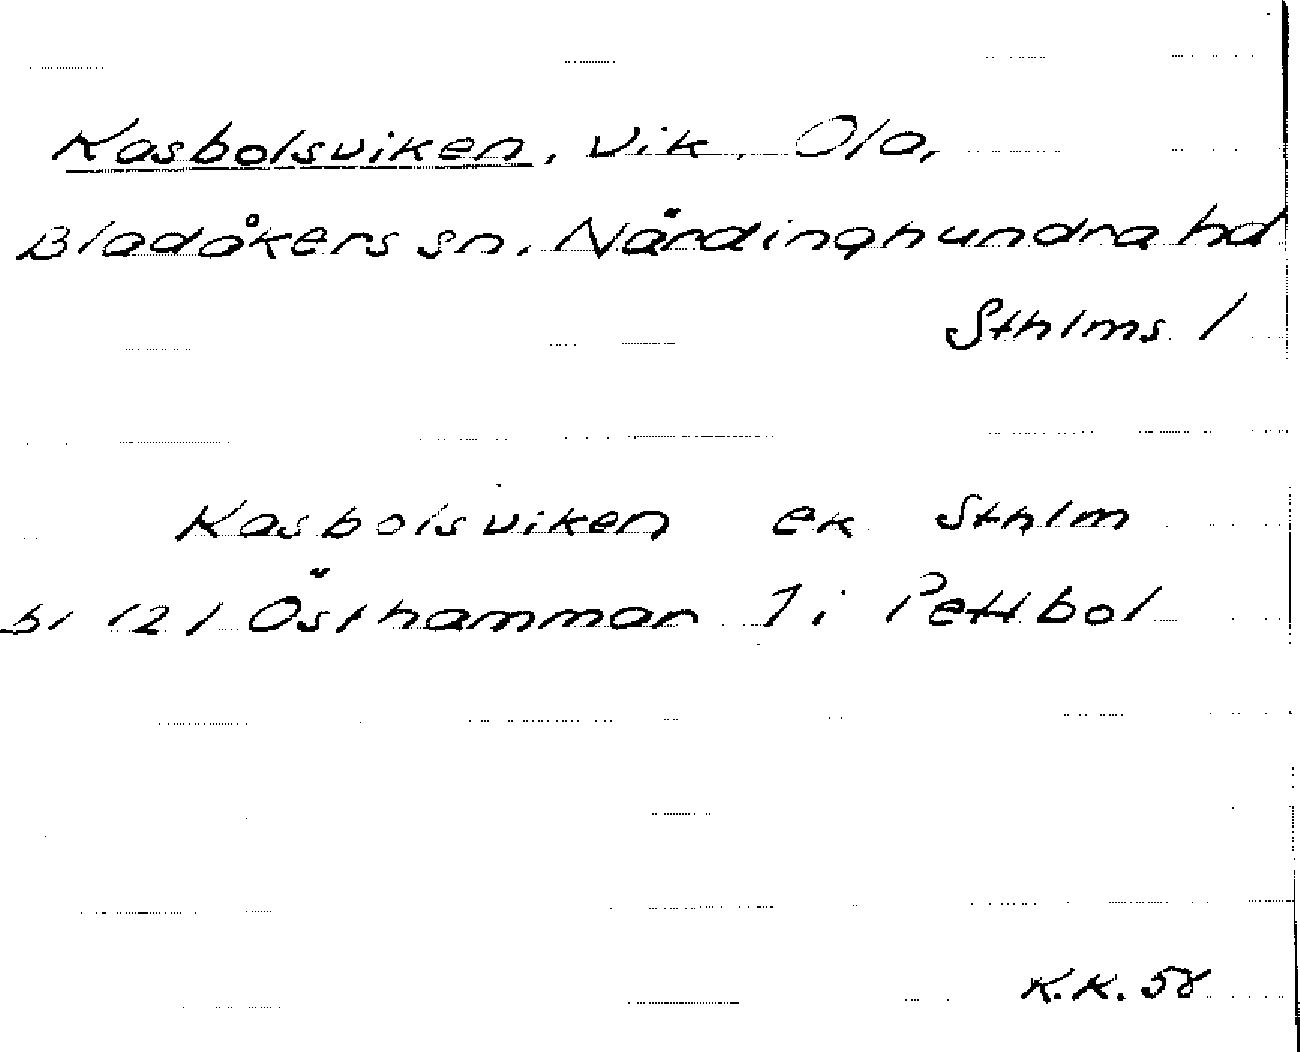 Kasbolsviken, vik, Ola,
Bladåkers sn. Närdinghundra hd
Sthlms l
Kasbolsviken ek Sthlm
bl 121 Östhammar 1 i Pettbol
K.K. 58